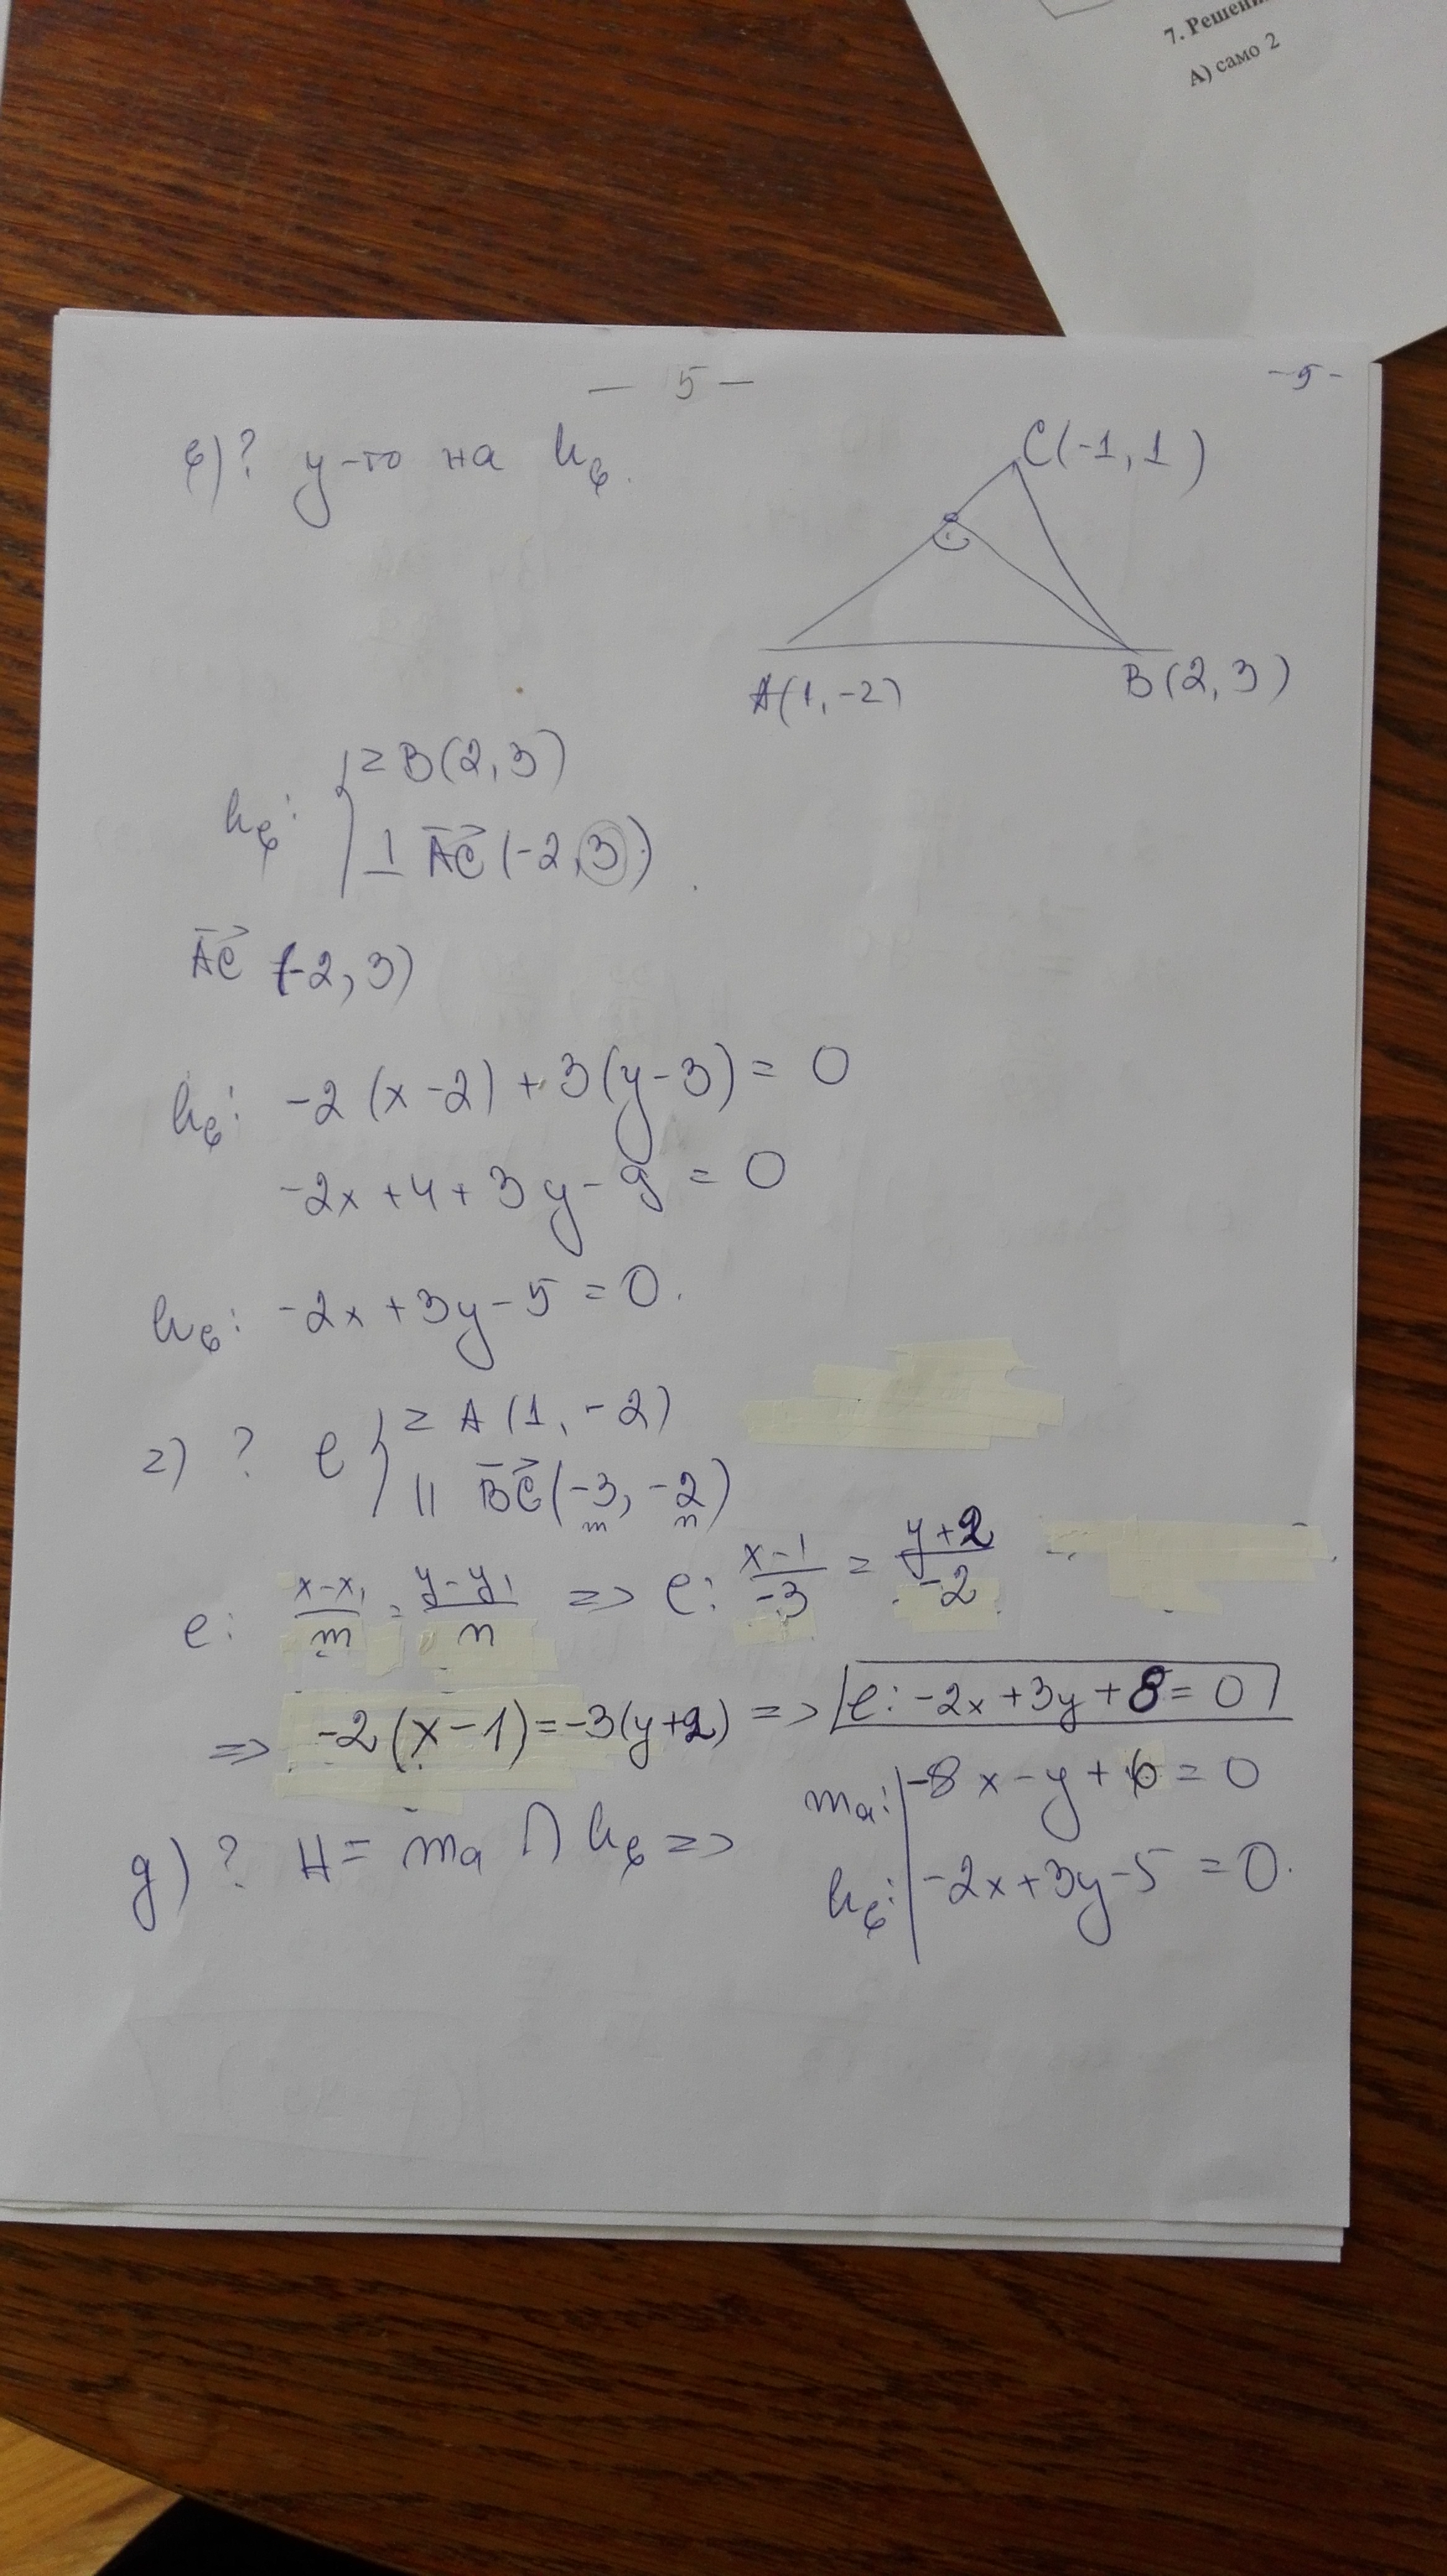 7. Решени
А) само 2
— 5 —
- 5 -
в) ? у-то на hв.
C(-1, 1)
A(1, -2)
B(2, 3)
hв: { z B(2, 3)
⊥ AC (-2, 3)
AC (-2, 3)
hв: -2(x-2) + 3(y-3) = 0
-2x + 4 + 3y - 9 = 0
hв: -2x + 3y - 5 = 0.
г) ? l { z A(1, -2)
|| BC (-3, -2)
m n
l: x-x₁/m = y-y₁/n => l: x-1/-3 = y+2/-2
=> -2(x-1) = -3(y+2) => l: -2x + 3y + 8 = 0
g) ? H = ma ∩ hв =>
ma: | -8x - y + 6 = 0
hв: | -2x + 3y - 5 = 0.